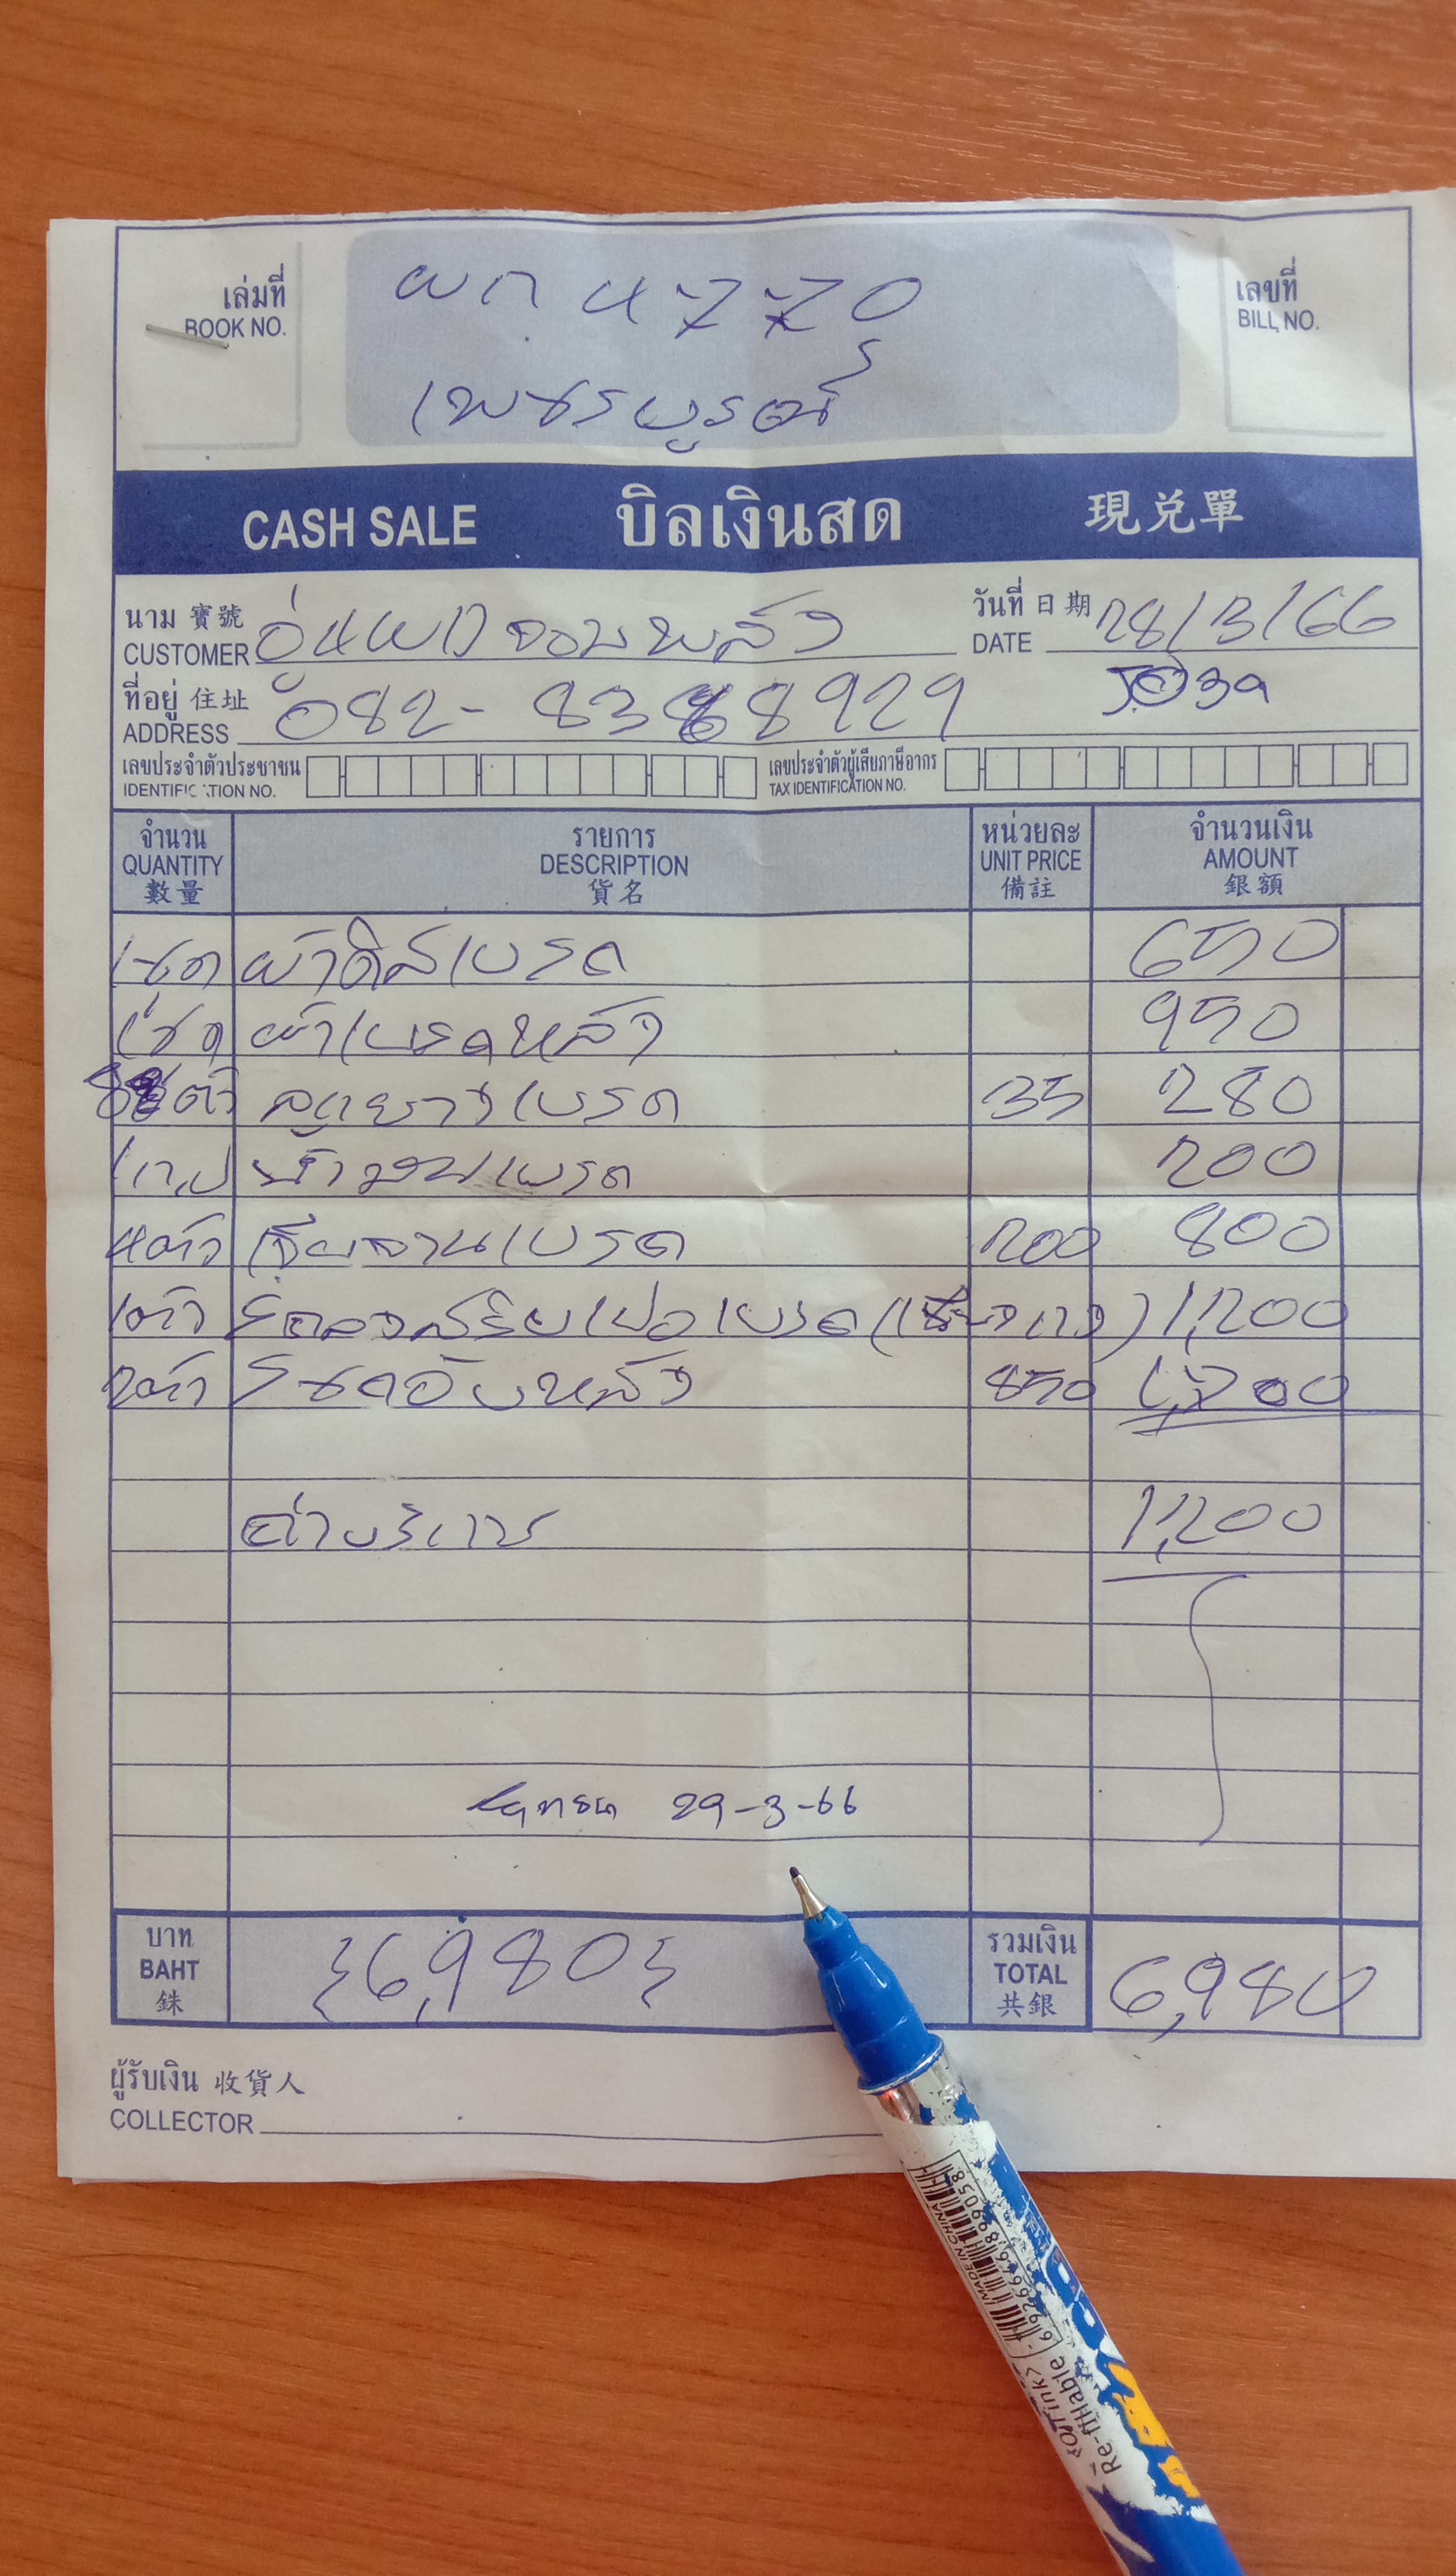 เล่มที่
BOOK NO.
ผก 4770
เพชรบูรณ์
เลขที่
BILL NO.
CASH SALE บิลเงินสด 現兌單
นาม 寶號
CUSTOMER อู่
วันที่ 日期 28/3/66
DATE
ที่อยู่ 住址
ADDRESS 082-8388929
เลขประจำตัวประชาชน
IDENTIFICATION NO.
เลขประจำตัวผู้เสียภาษีอากร
TAX IDENTIFICATION NO.
จำนวน รายการ หน่วยละ จำนวนเงิน
QUANTITY DESCRIPTION UNIT PRICE AMOUNT
數量 貨名 備註 銀額
1ชุด ผ้าดิสเบรค 650
1ชุด ผ้าเบรคหลัง 950
8ตัว ลูกยางเบรค 35 280
น้ำมันเบรค 200
4ตัว เจียจานเบรค 200 800
1ตัว เบรค 1,200
2ตัว โชคอัพหลัง 850 1,700
ค่าบริการ 1,200
29-3-66
บาท
BAHT
銖
{6,980}
รวมเงิน
TOTAL
共銀
6,980
ผู้รับเงิน 收貨人
COLLECTOR
MADE IN CHINA
Re-fillable